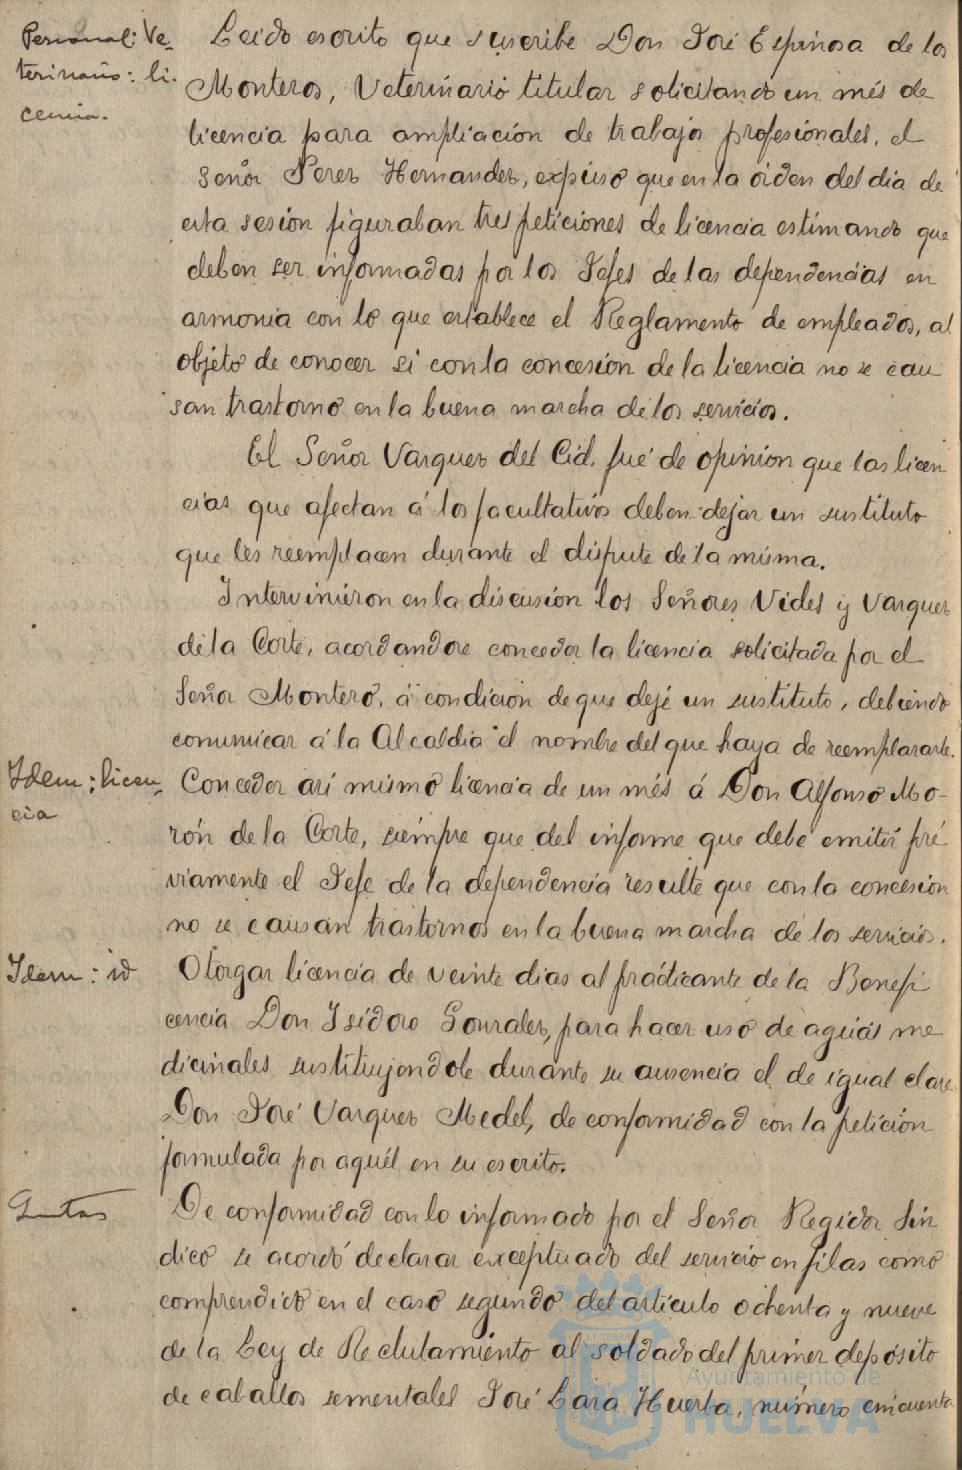 Personal: Ve-
terinario: li-
cencia.
Leido escrito que suscribe Don José Espinosa de los
Monteros, Veterinario titular solicitando un més de
licencia para ampliación de trabajos profesionales, el
Señor Perez Hernandez, expuso que en la orden del dia de
esta sesión figuraban tres peticiones de licencia estimando que
deben ser informadas por los Jefes de las dependencias en
armonia con lo que establece el Reglamento de empleados, al
objeto de conocer si con la concesión de la licencia no se cau
san trastorno en la buena marcha de los servicios.
El Señor Vazquez del Cid, fué de opinion que las licen
cias que afectan á los facultativos deben dejar un sustituto
que les reemplacen durante el disfrute de la misma.
Intervinieron en la discusión los Señores Vides y Vazquez
de la Corte, acordandose conceder la licencia solicitada por el
Señor Montero, á condicion de que deje un sustituto, debiendo
comunicar á la Alcaldia el nombre del que haya de reemplazarle.
Idem: licen-
cia
Conceder asi mismo licencia de un més á Don Alfonso Mo-
rón de la Corte, siempre que del informe que debe emitir pre
viamente el Jefe de la dependencia resulte que con la concesión
no se causan trastornos en la buena marcha de los servicios.
Idem: id
Otorgar licencia de veinte dias al practicante de la Benefi
cencia Don Isidoro Gonzalez, para hacer uso de aguas me
dicinales sustituyendole durante su ausencia el de igual clase
Don José Vazquez Medel, de conformidad con la petición
formulada por aquél en su escrito.
Quintas
De conformidad con lo informado por el Señor Regidor Sin
dico se acordó declarar exceptuado del servicio en filas como
comprendido en el caso segundo del articulo ochenta y nueve
de la Ley de Reclutamiento al soldado del primer deposito
de caballos sementales José Lara Huerta, número cincuenta
Ayuntamiento de
HUELVA